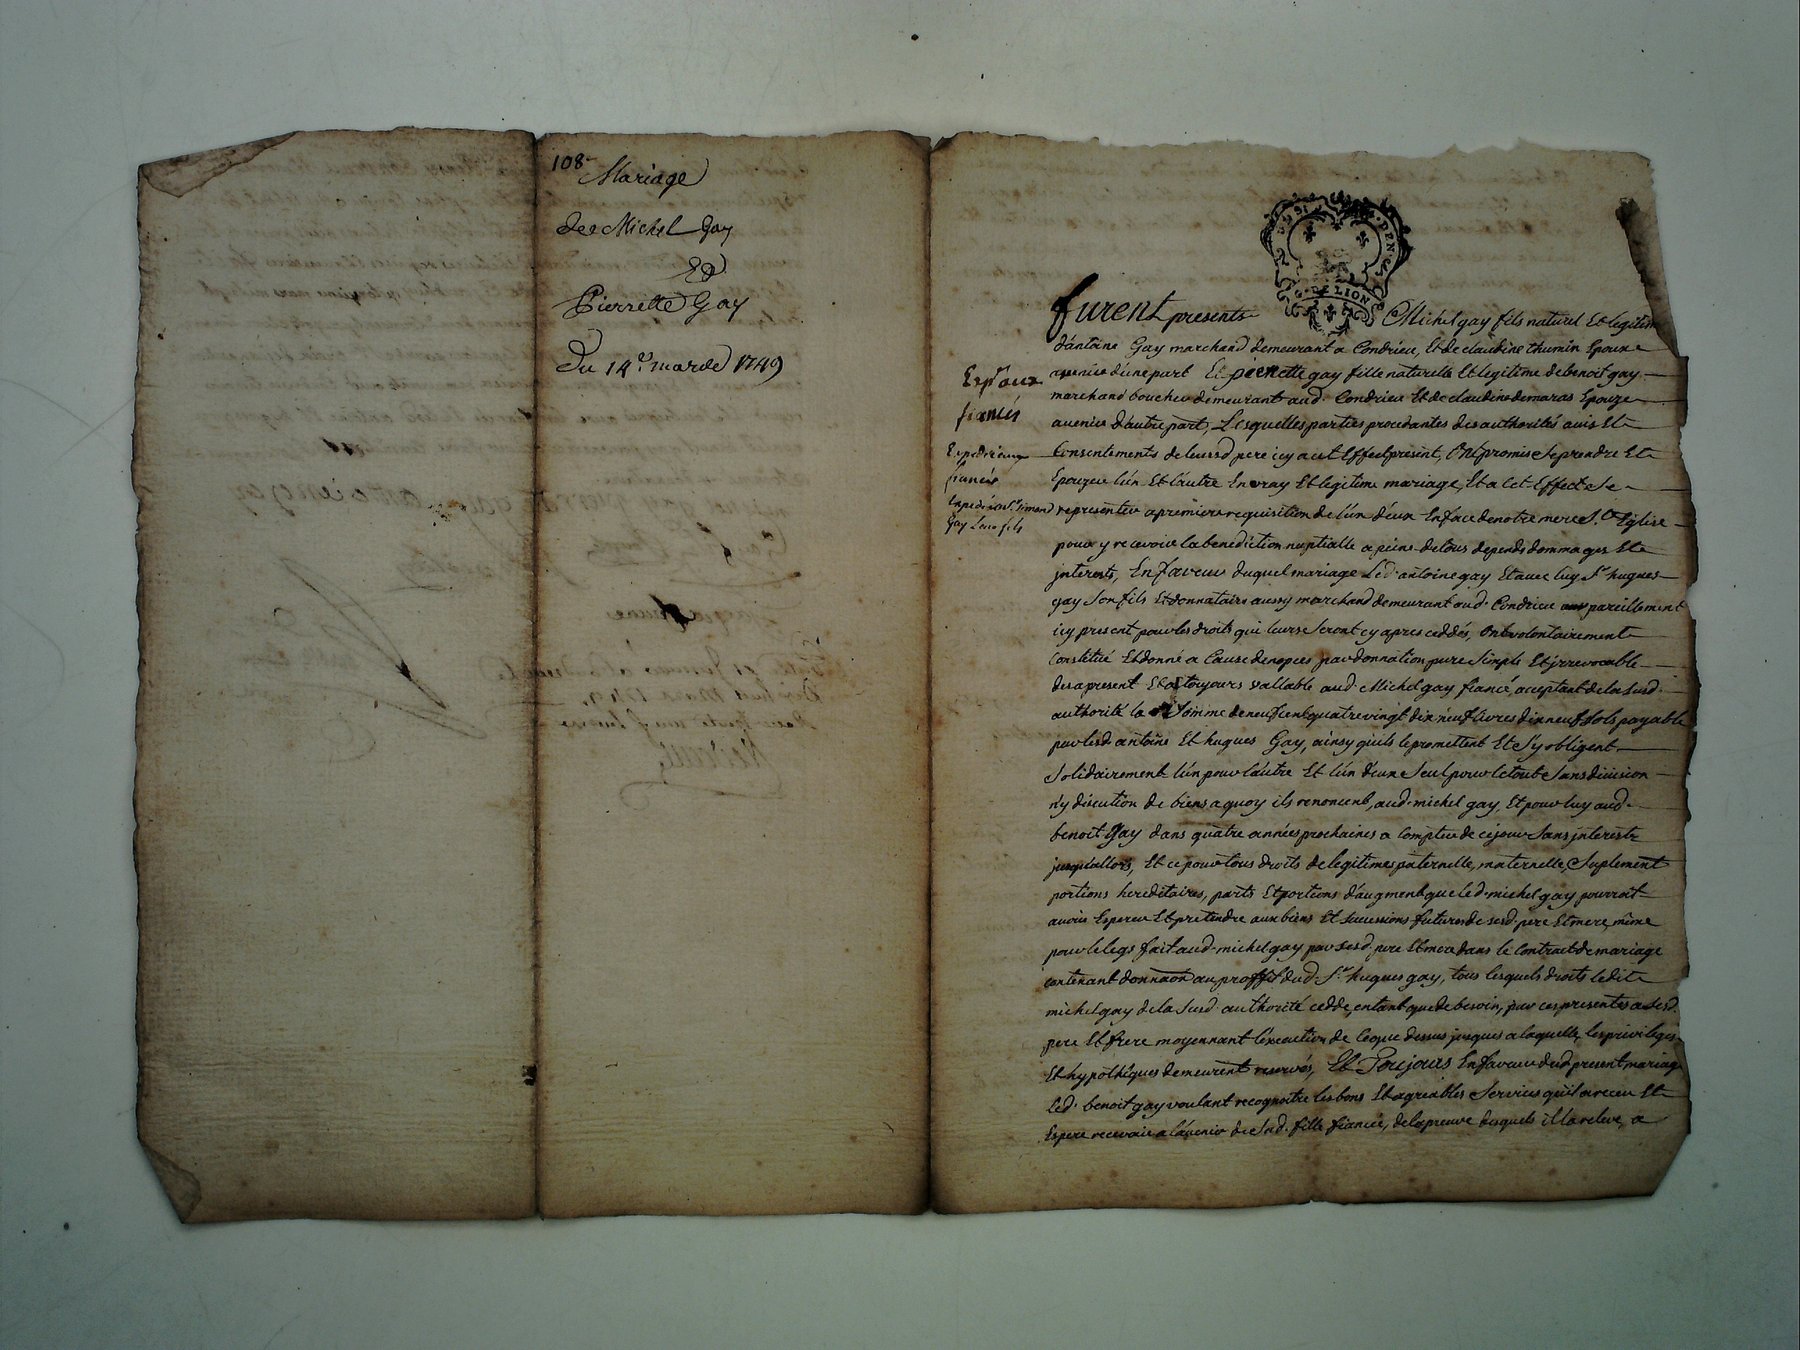 108
Mariage
de Michel Gay
Et
Pierrette Gay
Du 14e mars 1749
G. DE LION
furent presents Michel gay fils naturel Et legitime
d'antoine Gay marchand demeurant a Condrieu, Et de claudine thumin Epoux
avenir d'une part Et pierrette gay fille naturelle Et legitime de benoit gay
marchand boucher demeurant aud. Condrieu Et de claudine demaras Epouze
avenir d'autre part, Lesquelles parties procedantes des authorités avis Et
Consentements de leursd pere icy a cet Effect present, Ont promis Se prendre Et
Epouzer l'un Et l'autre En vray Et legitime mariage, Et a Cet Effect Se
representer a premiere requisition de l'un d'eux En face de notre mere Ste Eglise
pour y recevoir la benediction nuptialle a peine de tous depends dommages Et
interests, En faveur duquel mariage Led. antoine gay Et avec luy Sr hugues
gay Son fils Et donnataire aussy marchand demeurant aud. Condrieu pareillement
icy present pour les droits qui leurs Seront cy apres ceddés, Ont volontairement
Constitué Et donné a Cause de nopces par donnation pure Simple Et irrevocable
des a present Et a toujours vallable aud. Michel gay fiancé aceptant de la susd.
authorité la Somme de neuf cent quatre vingt dix neuf livres dix neuf sols payable
par lesd antoine Et hugues Gay, ainsy qu'ils le promettent Et S'y obligent
Solidairement l'un pour l'autre Et l'un d'eux Seul pour le tout Sans division
n'y discution de biens a quoy ils renoncent, aud. michel gay, Et pour luy aud.
benoit Gay dans quatre années prochaines a compter de ce jour Sans interests
jusqu'allors, Et ce pour tous droits de legitimes paternelle, maternelle, Suplement
portions hereditaires, parts Et portions d'augment que led. michel gay pourroit
avoir Esperer Et pretendre aux biens Et sucessions futures de sesd. pere Et mere, même
pour le legs fait aud. michel gay par sesd. pere Et mere dans le Contract de mariage
contenant donnaon au proffit dud. Sr hugues gay, tous lesquels droits ledit
michel gay de la Susd authorité cedde, entant que de besoin, par ces presentes a sesd.
pere Et frere moyennant l'execution de Ceque dessus jusques a laquelle, les privileges
Et hypothéques demeurent reservés, Et Toujours En faveur dud. present mariage
Led. benoit gay voulant recognoitre les bons Et agreables Services qu'il a receu Et
Espere recevoir a l'avenir de Sad. fille fiancée, de la preuve desquels il la releve, a
Expr aux
fiancés
fiancés
Sr Simond
Gay